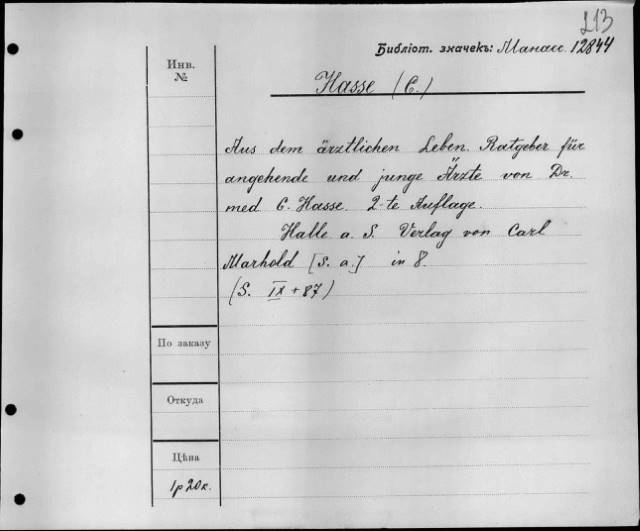 213
Библіот. значекъ: Манасс. 12844
Инв.
№
Hasse (C.)
Aus dem ärztlichen Leben. Ratgeber für
angehende und junge Ärzte von Dr.
med C. Hasse. 2-te Auflage.
Halle a. S. Verlag von Carl
Marhold [S. a.] in 8.
(S. IX + 87)
По заказу
Откуда
Цѣна
1 р 20 к.